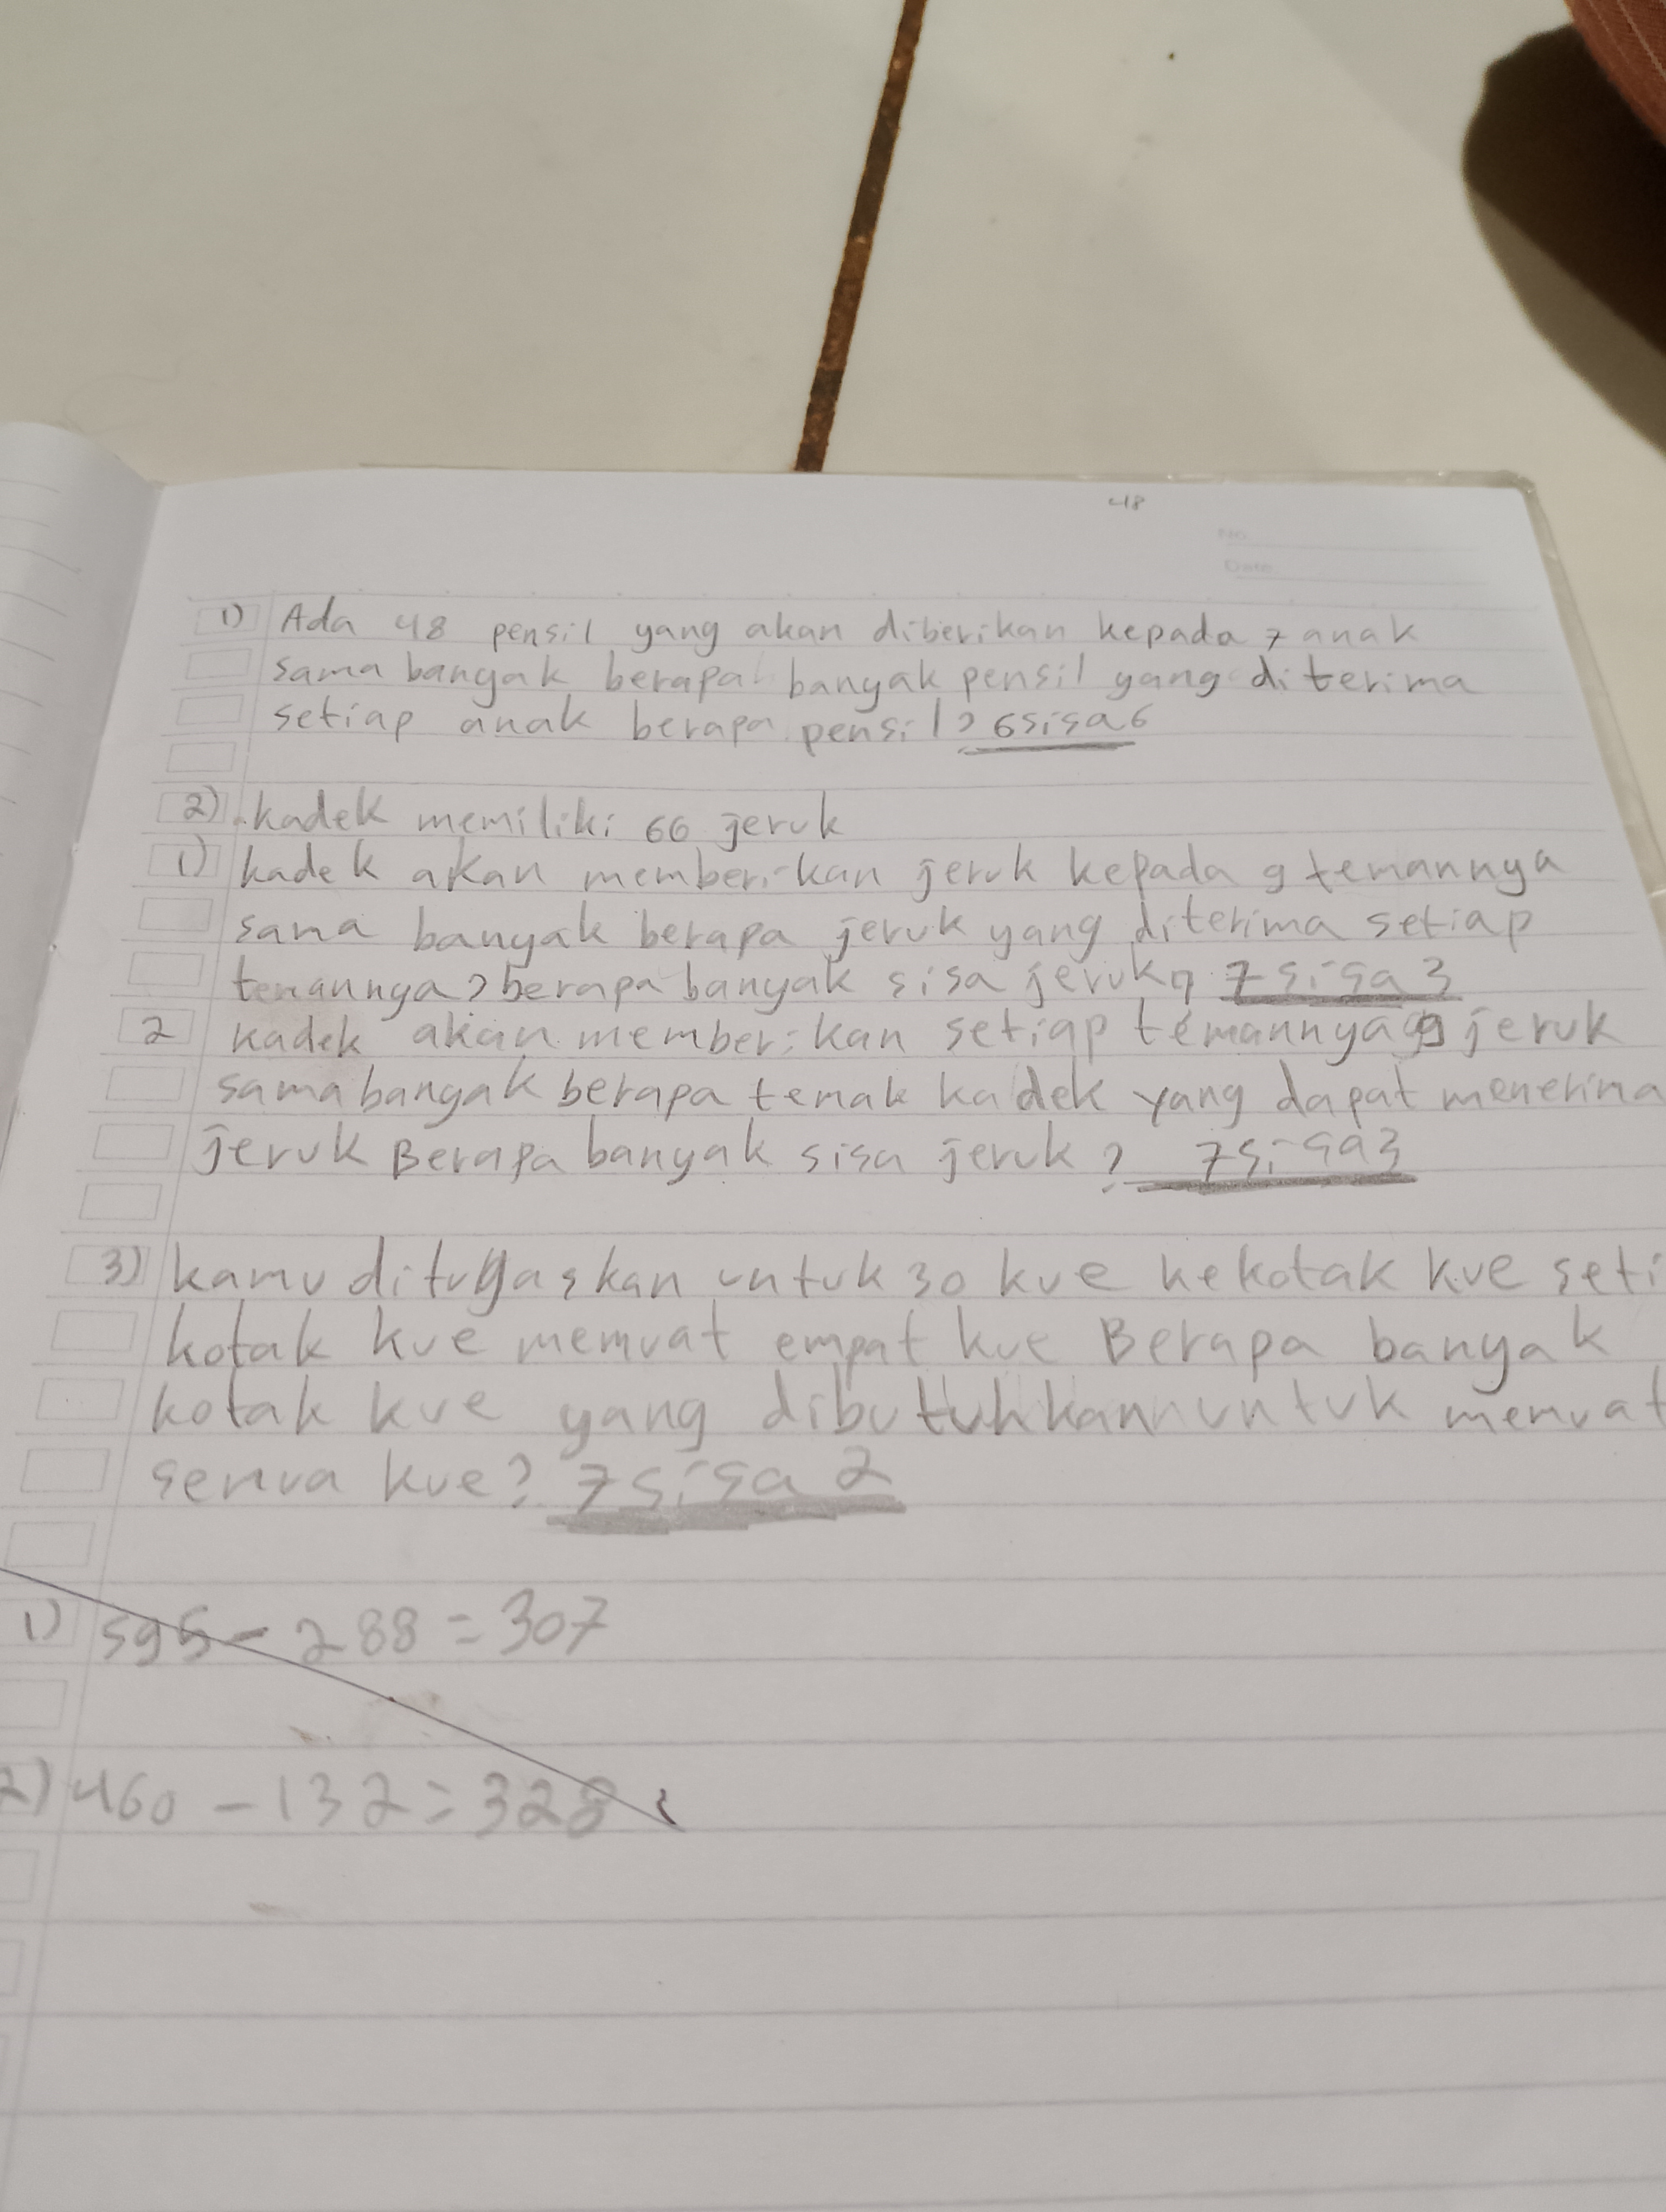 48
No.
Date.
1) Ada 48 pensil yang akan diberikan kepada 7 anak
sama banyak berapa banyak pensil yang diterima
setiap anak berapa pensil? 6 sisa 6
2) kadek memiliki 66 jeruk
1) kadek akan memberikan jeruk kepada 9 temannya
sama banyak berapa jeruk yang diterima setiap
temannya? berapa banyak sisa jeruk? 7 sisa 3
2 kadek akan memberikan setiap temannya 9 jeruk
sama banyak berapa temak kadek yang dapat menerima
jeruk Berapa banyak sisa jeruk? 7 sisa 3
3) kamu ditugaskan untuk 30 kue kekotak kue seti
kotak kue memuat empat kue Berapa banyak
kotak kue yang dibutuhkan untuk memuat
semua kue? 7 sisa 2
1) 595 - 288 = 307
2) 460 - 132 = 328